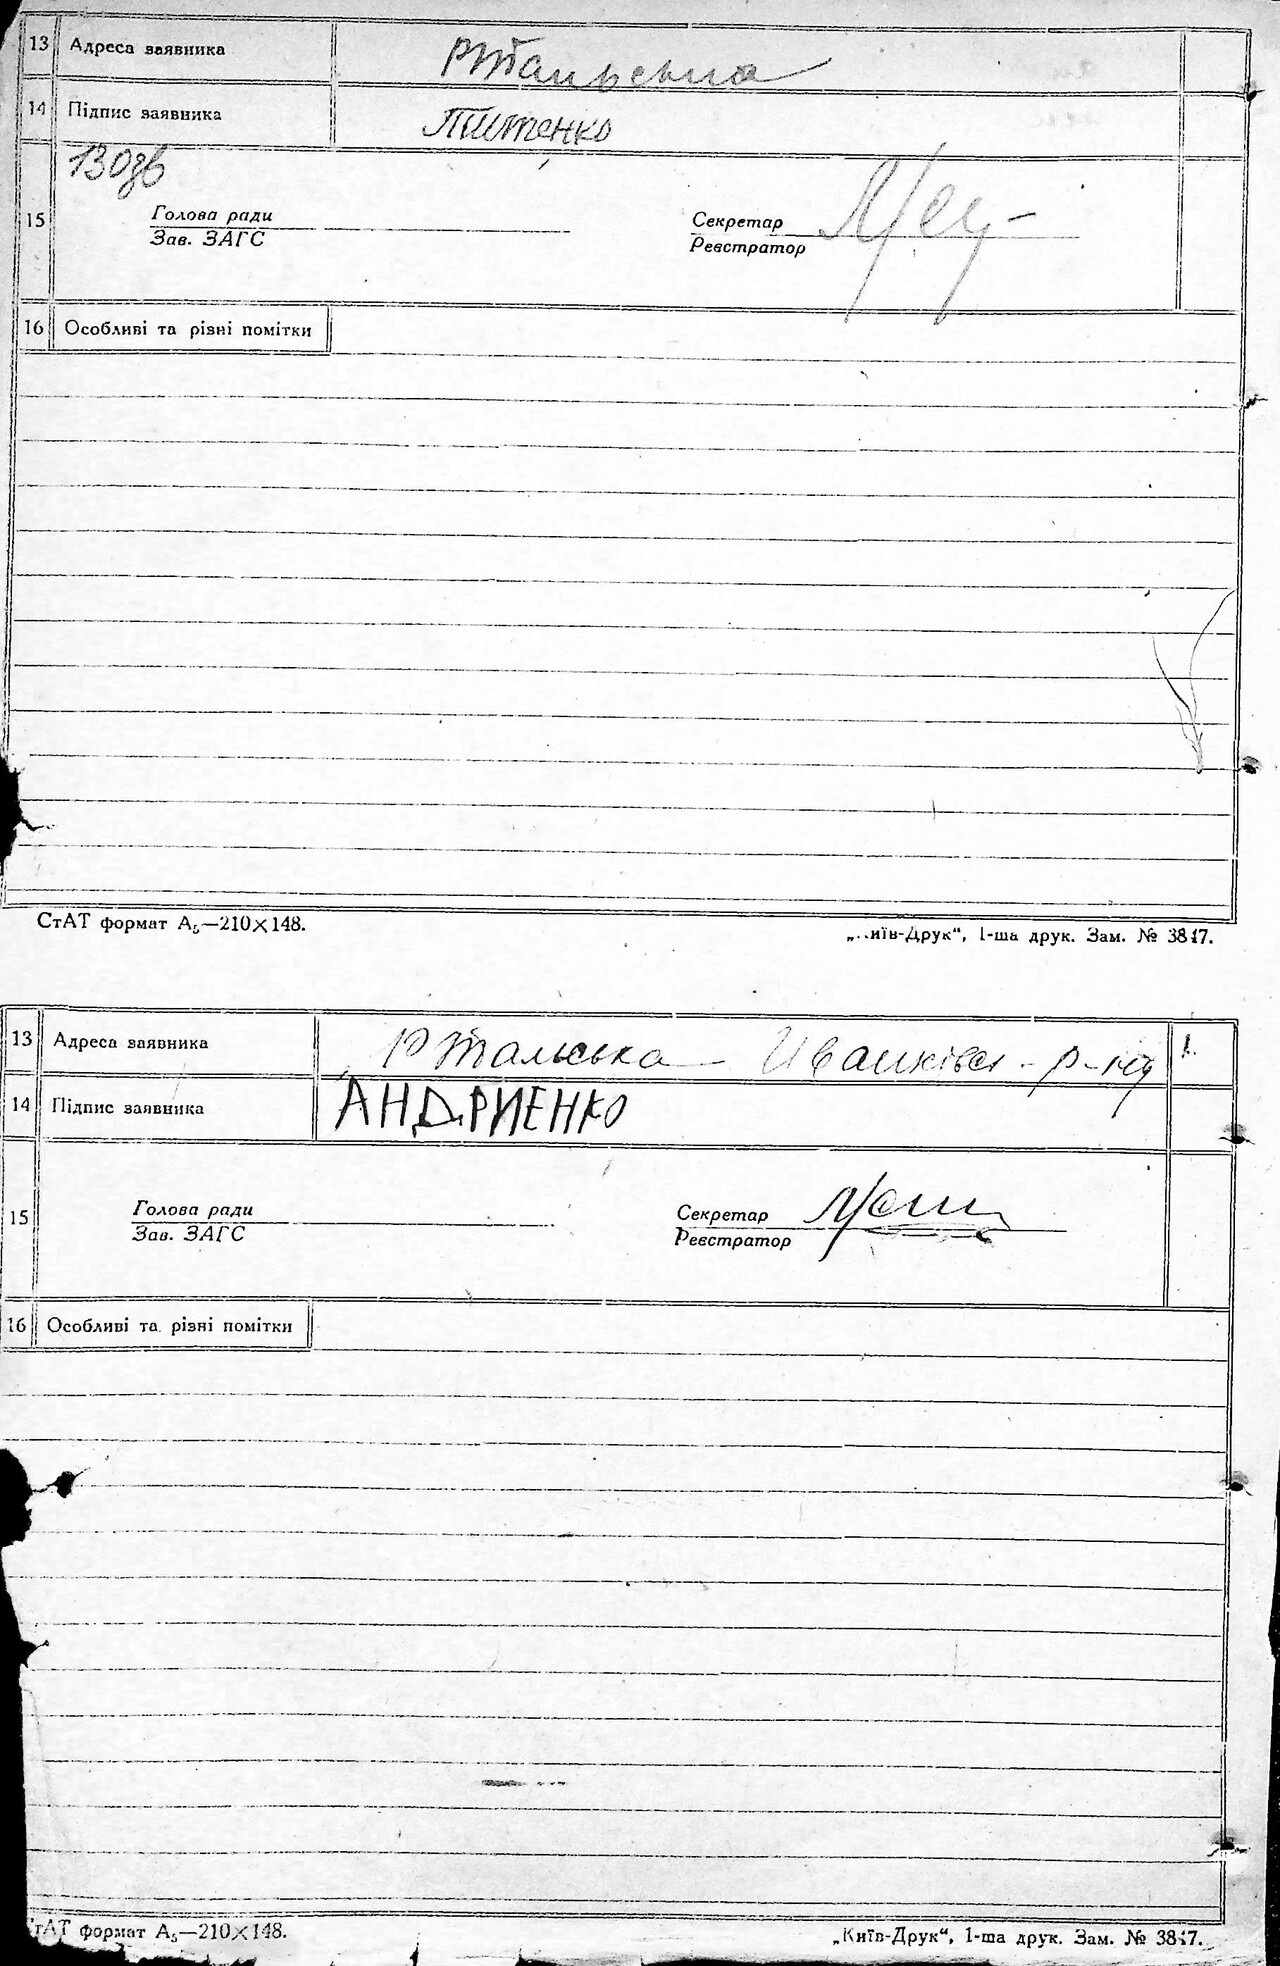 13 Адреса заявника Ртальська
14 Підпис заявника Титенко
15 Голова ради Секретар
Зав. ЗАГС Реєстратор
16 Особливі та різні помітки
СтАТ формат А5—210×148. 1-ша друк. Зам. №
13 Адреса заявника Ртальська р-ну
14 Підпис заявника АНДРИЕНКО
15 Голова ради Секретар
Зав. ЗАГС Реєстратор
16 Особливі та різні помітки
формат А5—210×148. „Київ-Друк“, 1-ша друк. Зам. №